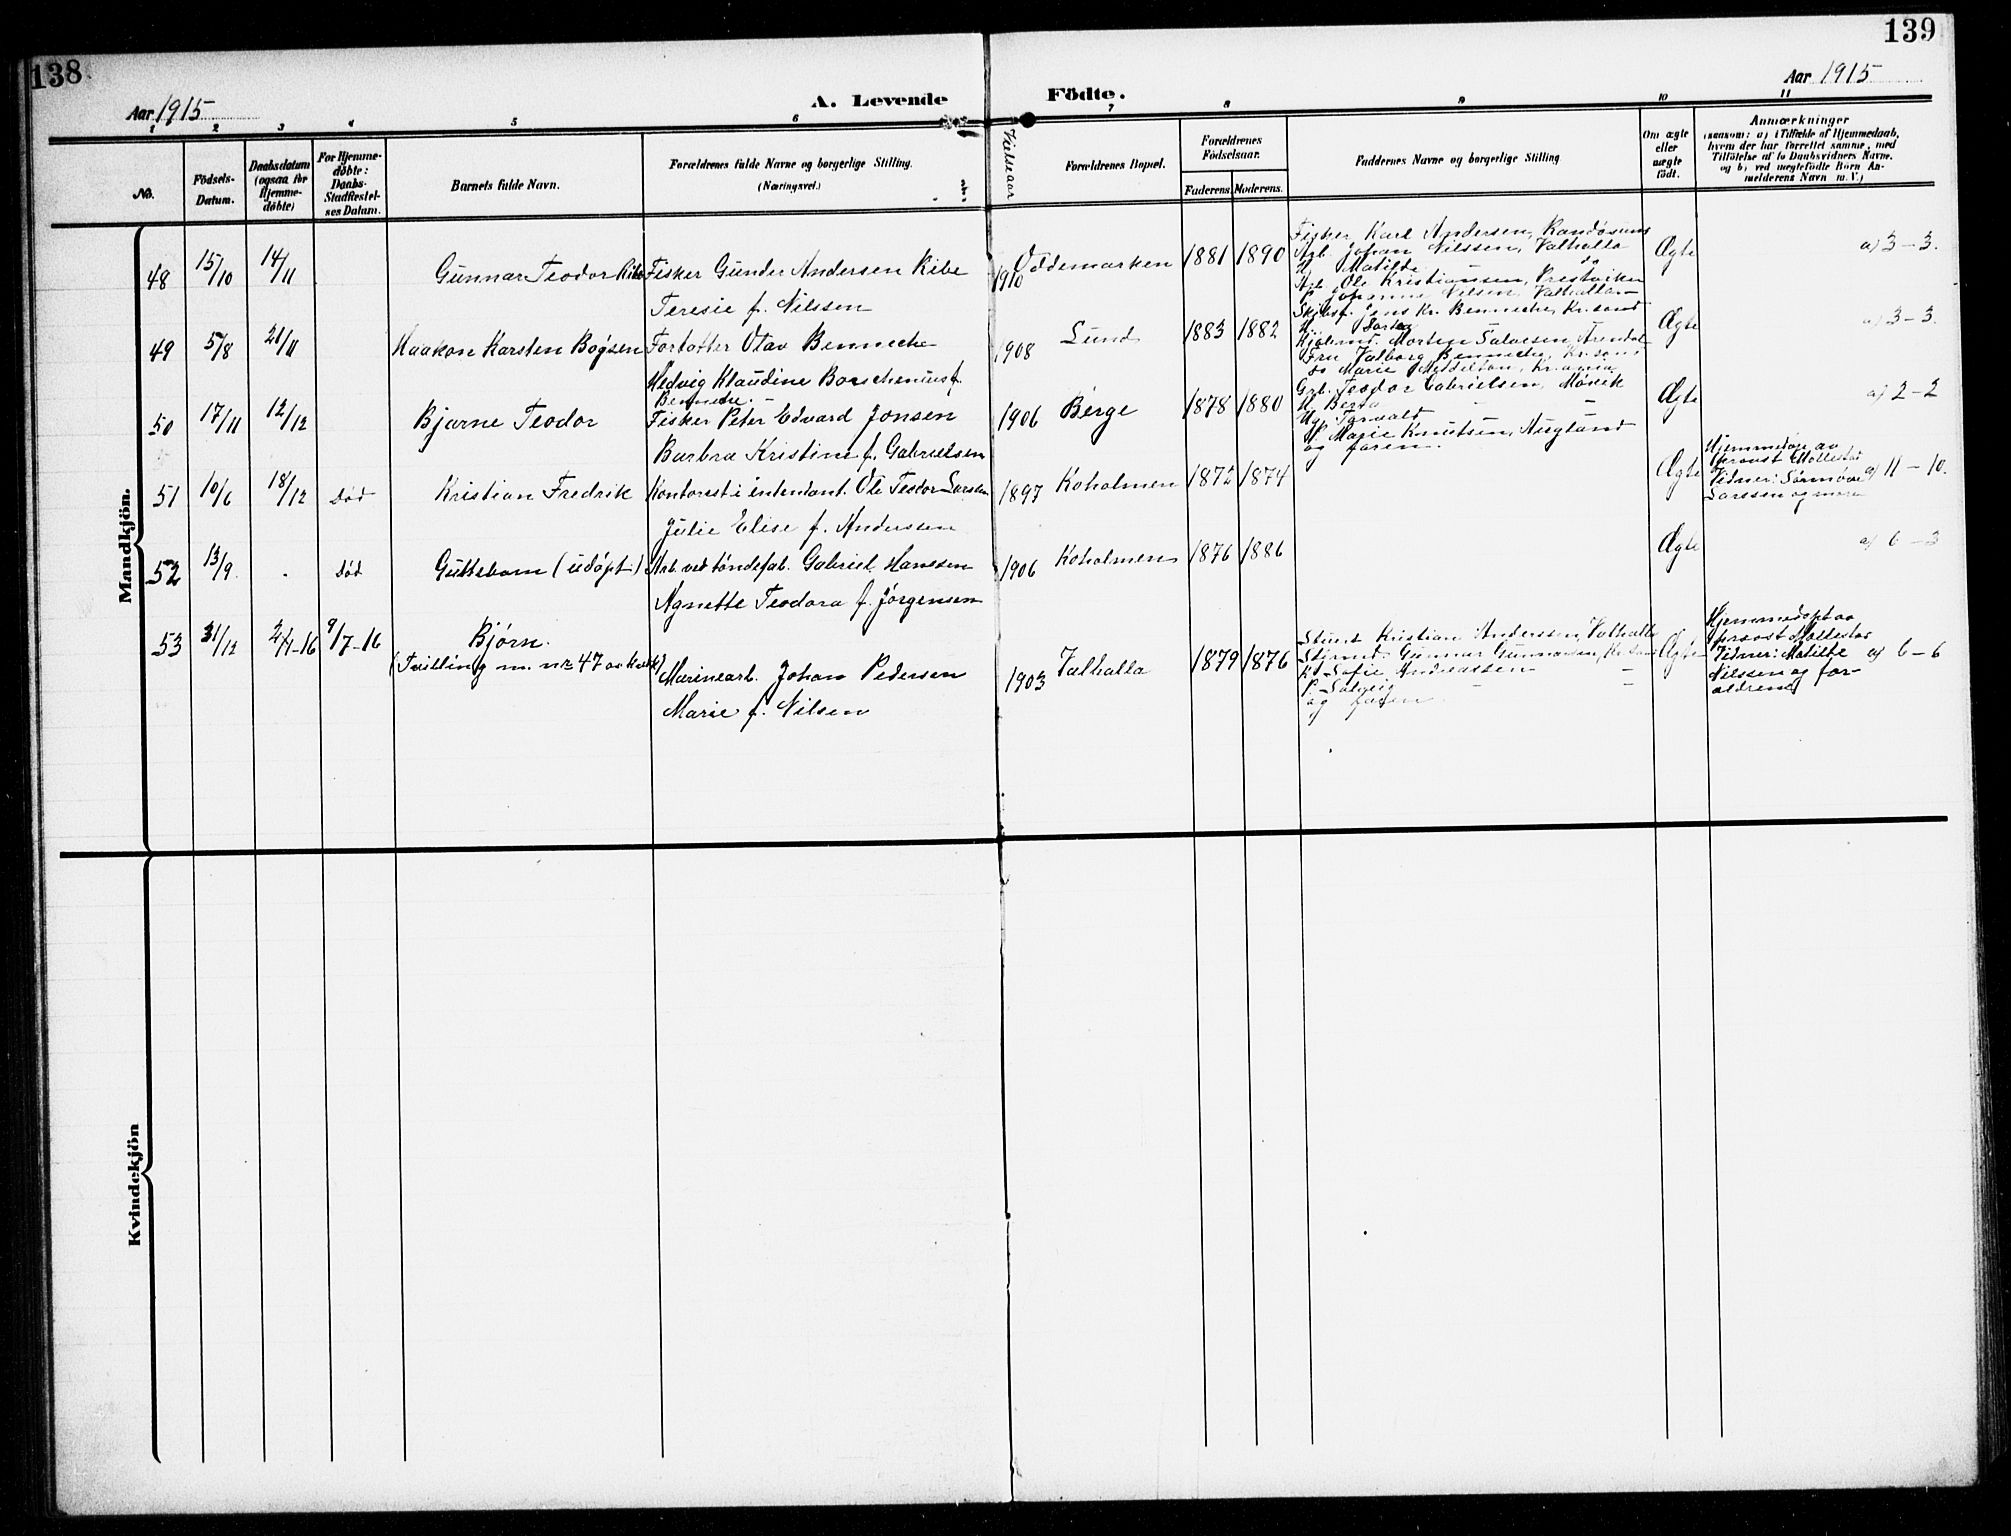 138
139
Aar 1915
A. Levende
Födte.
Aar 1915
1 2 3 4 5 6 7 8 9 10 11
No.
Födsels-
Datum.
Daabsdatum
(ogsaa for
Hjemme-
döbte)
For Hjemme-
döbte:
Daabs-
Stadfæstel-
ses Datum.
Barnets fulde Navn.
Forældrenes fulde Navne og borgerlige Stilling.
(Næringsvei.)
Vielsesaar
Forældrenes Bopæl.
Forældrenes
Födselsaar.
Faderens.
Moderens.
Faddernes Navne og borgerlige Stilling
Om ægte
eller
uægte
födt.
Anmærkninger
(saasom: a) i Tilfælde af Hjemmedaab,
hvem der har forrettet samme, med
Tilföielse af to Daabsvidners Navne,
og b) ved uægtefödte Börn An-
melderens Navn m. V.)
Mandkjön.
48 15/10 14/11 Gunnar Teodor Ribe
Fisker Gunder Andersen Ribe
Teresie f. Nilssen
1910 Oddemarken 1881 1890
Fisker Karl Andersen, Randøsund
Arb. Johan Nilssen, Valhalla
H. Matilde do
Arb. Ole Kristiansen, Prestviken
P. Johanne Nilsen, Valhalla
Ægte a) 3-3.
49 5/8 21/11 Haakon Karsten Bogsen
Forfatter Otav Benneche
Hedvig Klaudine Borchenius f.
Benneche.
1908 Lund 1883 1882
Skibsf. Jens Kr. Benneche, Kr.sand
H.
Kjøbmd. Morten Salvesen, Arendal
Fru Valborg Benneche, Kr.sand
do Marie Kr.ania
Ægte a) 3-3.
50 17/11 12/12 Bjarne Teodor
Fisker Peter Edvard Jonsen
Barbra Kristine f. Gabrielsen
1906 Berge 1878 1880
Grb. Teodor Gabrielsen, Møvik
H. Berta
Ug. Torvald
P. Marie Knutsen, Augland
og faren.
Ægte a) 2-2
51 10/6 18/12 Død Kristian Fredrik
Kontorist i intendant. Ole Teodor Larsen
Julie Elise f. Andersen
1897 Koholmen 1872 1874
Ægte
Hjemmedøpt av
provst Møllestad
Vidner: Jormor
Larssen og mora
a) 11-10.
52 13/9 . Død Guttebarn (udøpt)
Arb. ved tøndefab. Gabriel Hansen
Agnette Teodora f. Jörgensen
1906 Koholmen 1876 1886
Ægte a) 6-3
53 31/12 2/1-16 9/7-16 Bjørn.
(Tvilling m. nr 47 av kvk)
Marinearb. Johan Pedersen
Marie f. Nilsen
1903 Valhalla 1879 1876
Kristian Andersen, Valhalla
Styrmd. Gunnar Gunnarsen, Kr.sand
K. Sofie Andreassen -
P. Solveig - -
og faren.
Ægte
Hjemmedøpt av
provst Møllestad
Vidner: Matilde
Nilssen og for-
ældrene
a) 6-6
Kvindekjön